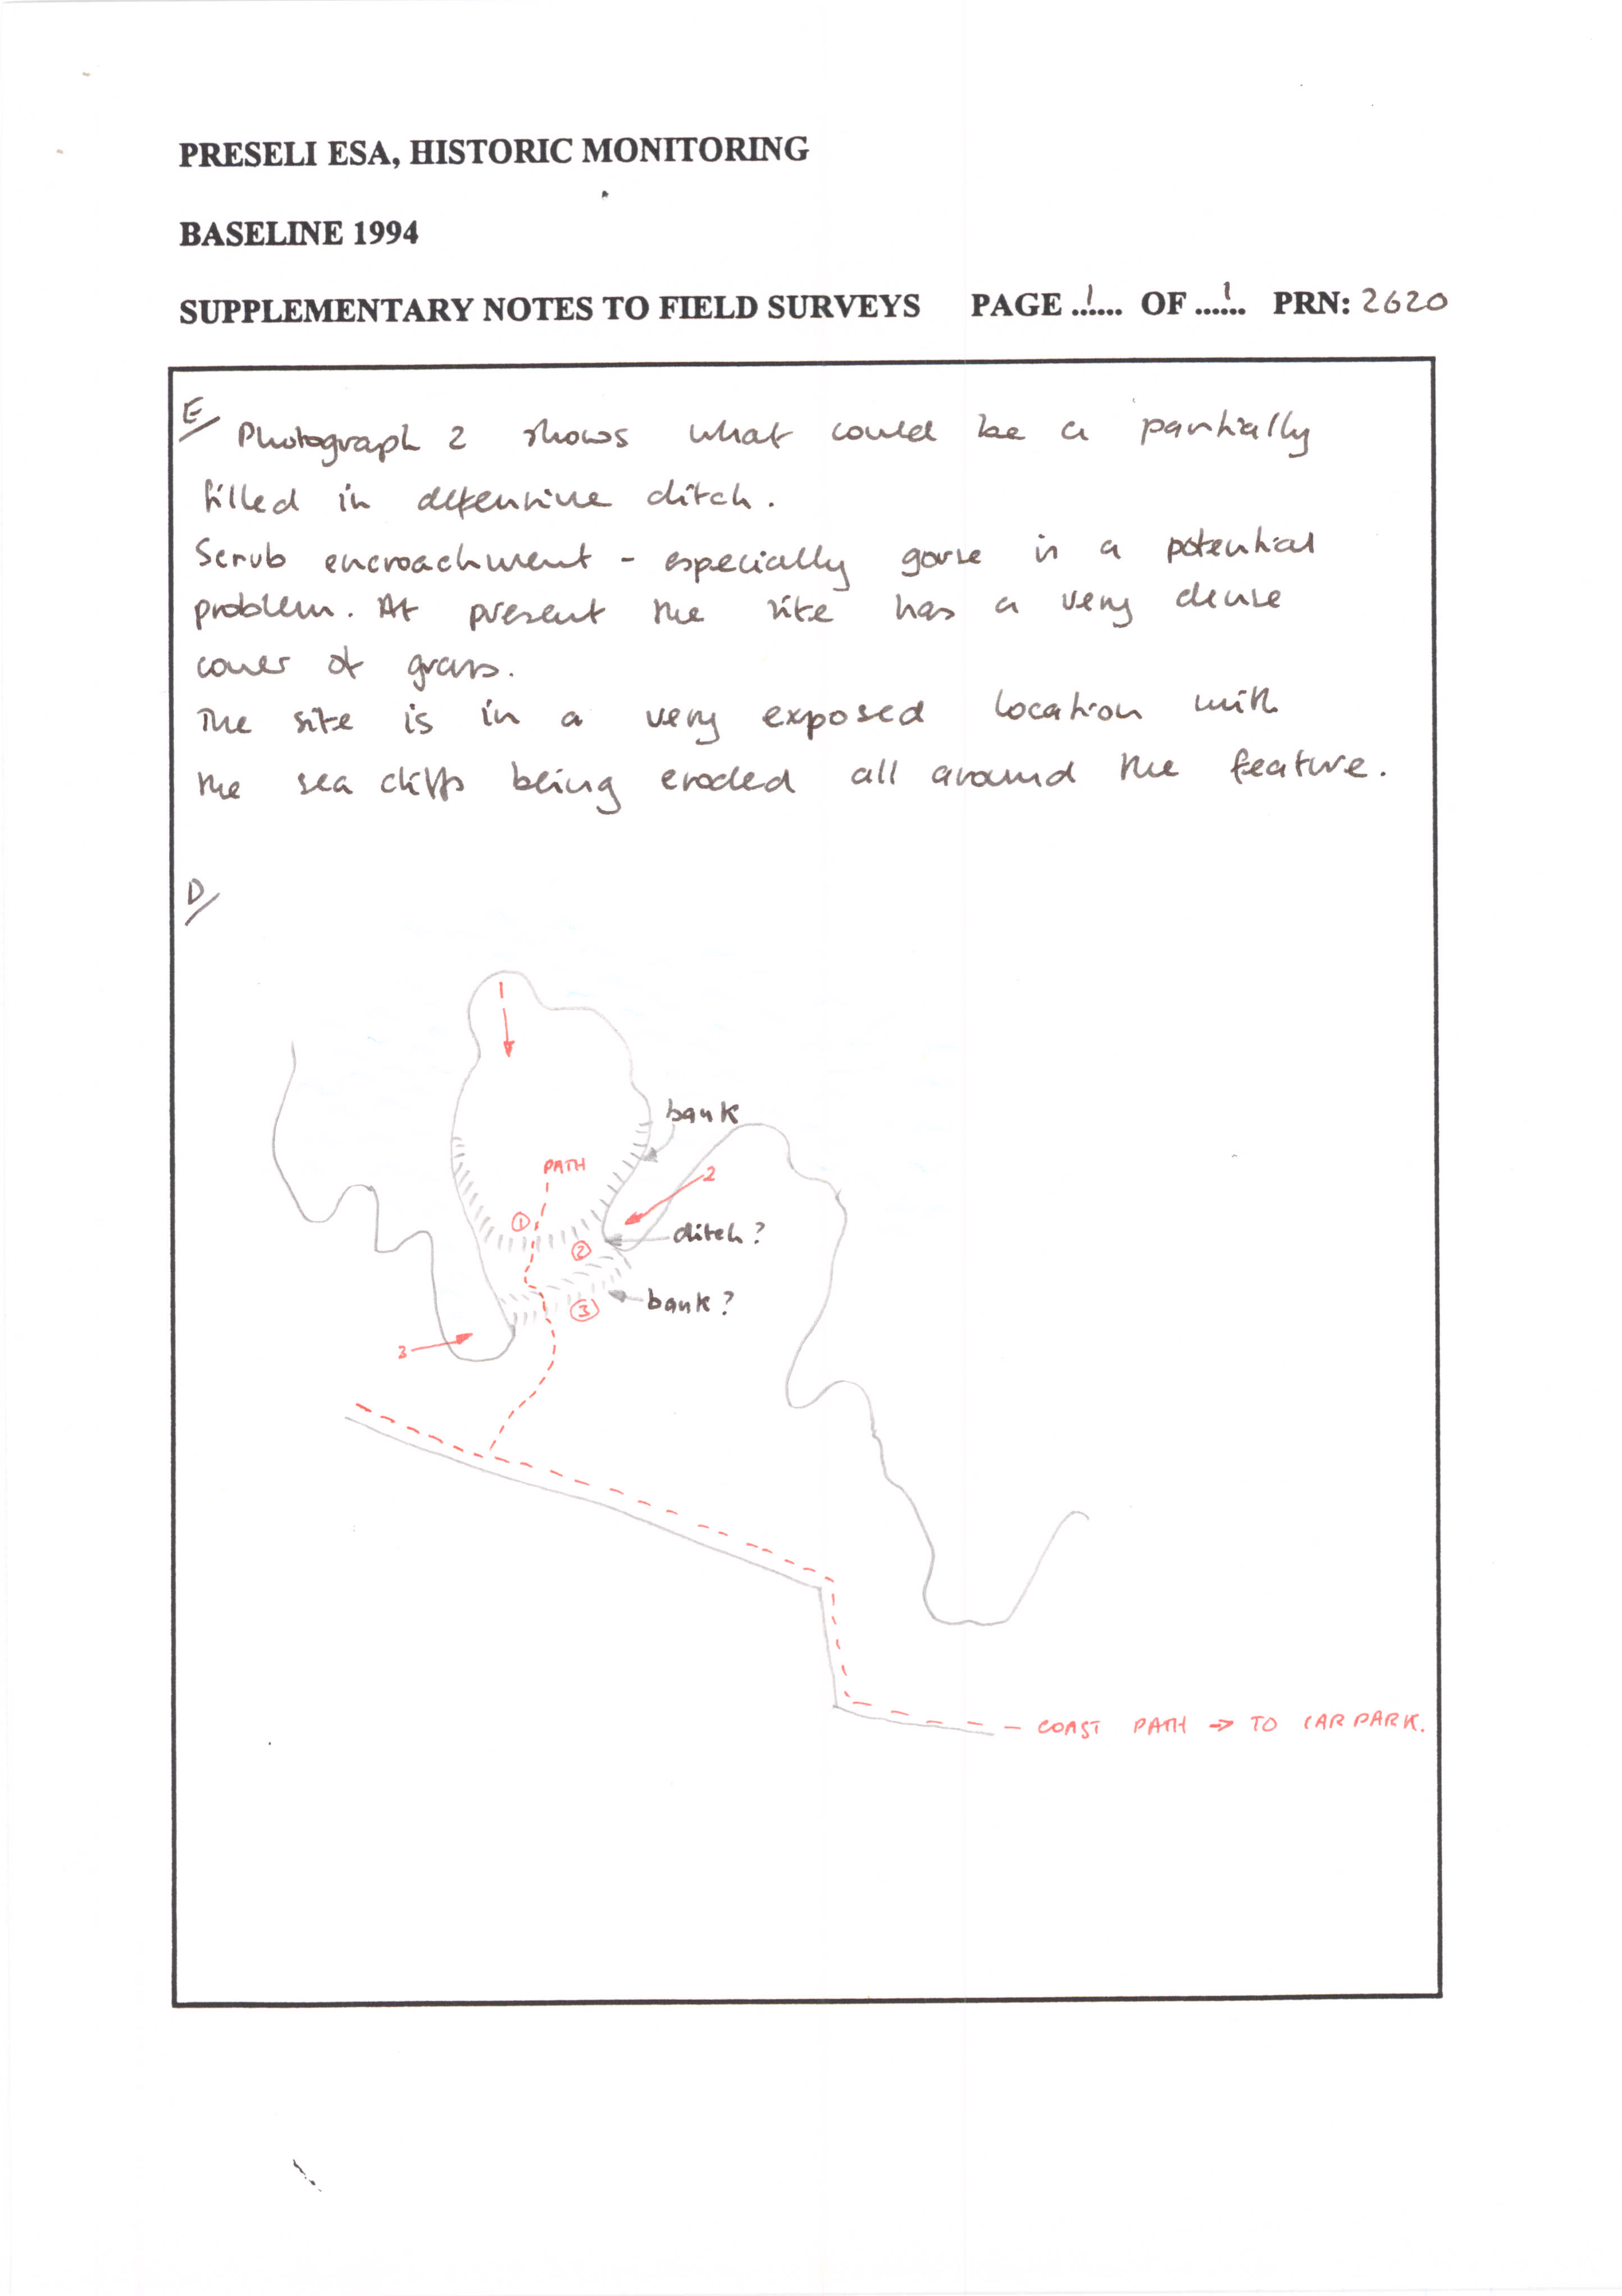 PRESELI ESA, HISTORIC MONITORING
BASELINE 1994
SUPPLEMENTARY NOTES TO FIELD SURVEYS PAGE ..1.... OF ...1... PRN: 2620
E/ Photograph 2 shows what could be a partially
filled in defensive ditch.
Scrub encroachment - especially gorse is a potential
problem. At present the site has a very dense
cover of grass.
The site is in a very exposed location with
the sea cliffs being eroded all around the feature.
D/
1
bank
PATH
2
①
ditch?
②
bank?
③
3
COAST PATH → TO CAR PARK.